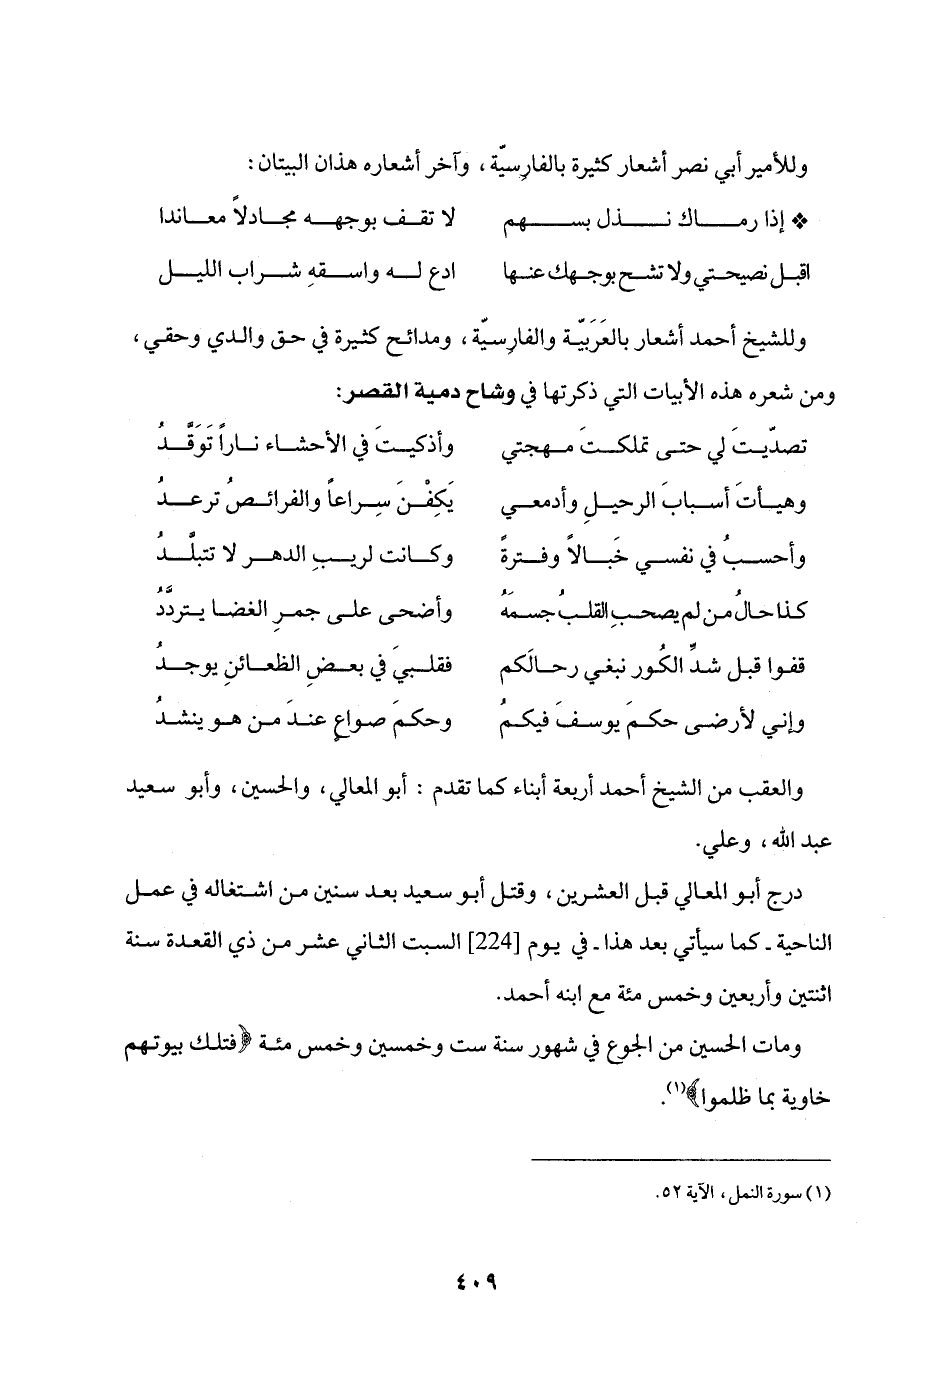 وللأمير أبي نصر أشعار كثيرة بالفارسيّة، وآخر أشعاره هذان البيتان:
❖ إذا رماك نذل بسهم لا تقف بوجهه مجادلاً معانداً
اقبل نصيحتي ولا تشح بوجهك عنها ادع له واسقهِ شراب الليل
وللشيخ أحمد أشعار بالعَرَبيّة والفارسيّة، ومدائح كثيرة في حق والدي وحقي،
ومن شعره هذه الأبيات التي ذكرتها في وشاح دمية القصر:
تصدّيتَ لي حتى تملكتَ مهجتي وأذكيتَ في الأحشاء ناراً تَوَقَّدُ
وهيأتَ أسبابَ الرحيلِ وأدمعي يَكِفْنَ سِراعاً والفرائصُ ترعدُ
وأحسبُ في نفسي خَبالاً وفترةً وكانت لريبِ الدهر لا تتبلَّدُ
كذا حالُ من لم يصحبِ القلبُ جسمَهُ وأضحى على جمرِ الغضا يتردَّدُ
قفوا قبل شدِّ الكُور نبغي رحالَكم فقلبيَ في بعضِ الظعائنِ يوجدُ
وإني لأرضى حكمَ يوسفَ فيكمُ وحكمَ صواعٍ عندَ من هو ينشدُ
والعقب من الشيخ أحمد أربعة أبناء كما تقدم : أبو المعالي، والحسين، وأبو سعيد
عبد الله، وعلي.
درج أبو المعالي قبل العشرين، وقتل أبو سعيد بعد سنين من اشتغاله في عمل
الناحية ـ كما سيأتي بعد هذا ـ في يوم [224] السبت الثاني عشر من ذي القعدة سنة
اثنتين وأربعين وخمس مئة مع ابنه أحمد.
ومات الحسين من الجوع في شهور سنة ست وخمسين وخمس مئة ﴿فتلك بيوتهم
خاوية بما ظلموا﴾(١).
(١) سورة النمل، الآية ٥٢.
٤٠٩